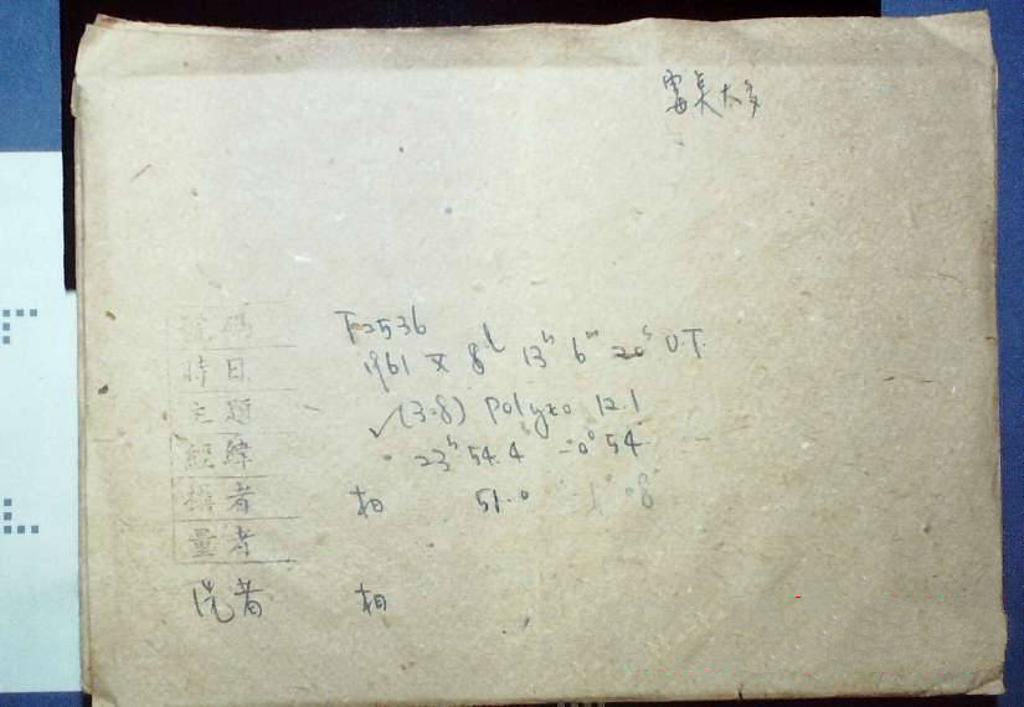 霉臭太多
號碼 F2536
時日 1961 X 8d 13h 6m 20s U.T.
主題 ✓(3.8) Polyxo 12.1
經緯 23h 54.4 -0° 54'
攝者 相 51.0 -1° 08'
量者
洗者 相